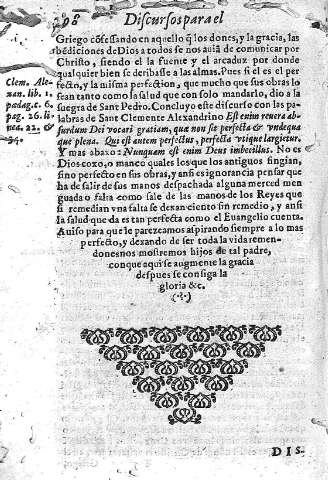 98 Discursos para el
Griego cõfessando en aquello q̃ los dones, y la gracia, las
bẽdiciones de Dios a todos se nos auiã de comunicar por
Christo, siendo el la fuente y el arcaduz por donde
qualquier bien se deribasse a las almas. Pues si el es el per
fecto, y la misma perfection, que mucho que sus obras lo
sean tanto como la salud que con solo mandarlo, dio a la
suegra de Sant Pedro. Concluyo este discurso con las pa-
labras de Sant Clemente Alexandrino Est enim reuera ab-
surdum Dei vocari gratiam, quæ non sit perfecta & vndequa
que plena. Qui est autem perfectus, perfecta vtique largietur.
Y mas abaxo: Nunquam est enim Deus imbecillus. No es
Dios coxo, o manco quales los que los antiguos fingian,
sino perfecto en sus obras, y ansi es ignorancia pensar que
ha de salir de sus manos despachada alguna merced men
guada o falta como sale de las manos de los Reyes que
si remedian vna falta se dexan ciento sin remedio, y ansi
la salud que da es tan perfecta como el Euangelio cuenta.
Auiso para que le parezcamos aspirando siempre a lo mas
perfecto, y dexando de ser toda la vida remen-
dones nos mostremos hijos de tal padre,
con que aqui se augmente la gracia
despues se consiga la
gloria &c.
(·?·)
Clem. Ale-
xan. lib. 1.
pædag. c. 6.
pag. 26. li-
nea. 22. &
24.
DIS-